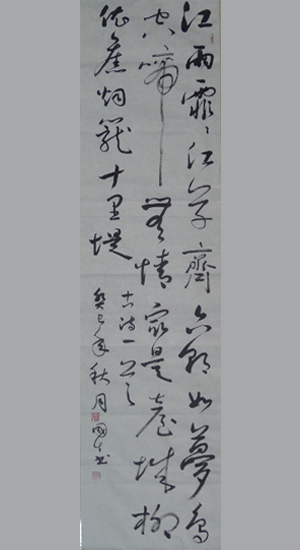 江雨霏霏江草齊六朝如夢鳥
空啼無情最是臺城柳
依舊烟籠十里堤
古诗一首
癸巳年秋月國书